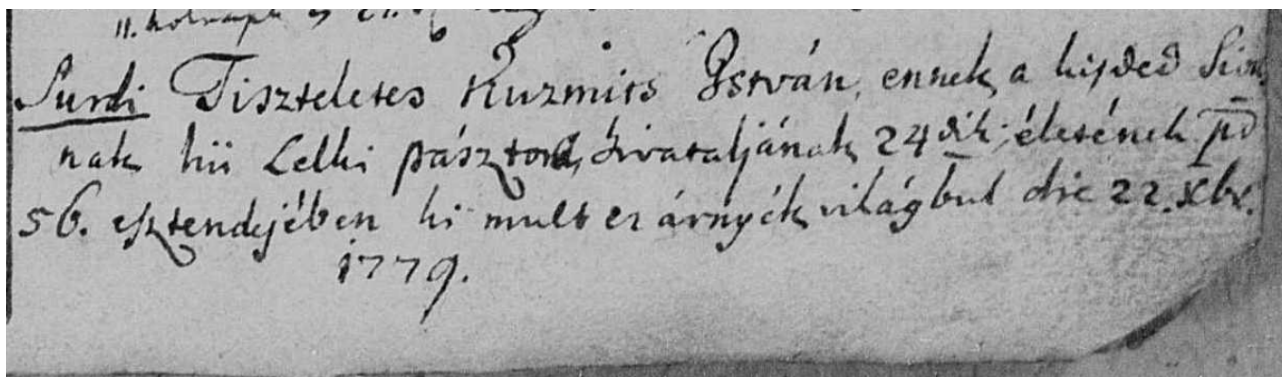 11. holnapi
Surdi Tiszteletes Kuzmits István, ennek a kisded Sion
nak hü Lelki pásztora, hivataljának 24dik; életének pd
56. esztendejében ki mult ez árnyék világbul die 22. Xbr.
1779.